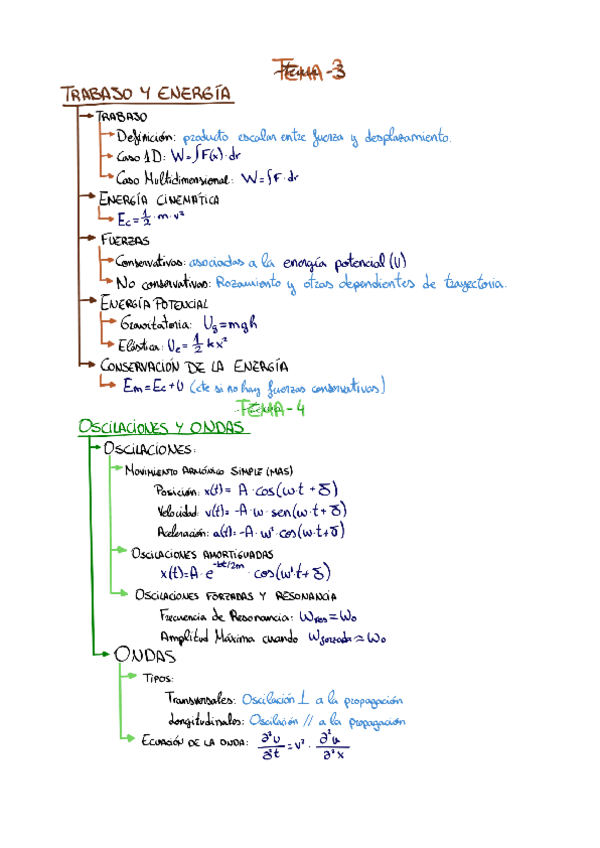 TEMA-3
TRABAJO Y ENERGÍA
TRABAJO
Definición: producto escalar entre fuerza y desplazamiento.
Caso 1D: W=∫F(x)·dr
Caso Multidimensional: W=∫F·dr
ENERGÍA CINEMÁTICA
Ec=½·m·v²
FUERZAS
Conservativas: asociadas a la energía potencial (U)
No conservativas: Rozamiento y otras dependientes de trayectoria.
ENERGÍA POTENCIAL
Gravitatoria: Ug=mgh
Elástica: Ue=½kx²
CONSERVACIÓN DE LA ENERGÍA
Em=Ec+U (cte si no hay fuerzas conservativas)
TEMA-4
OSCILACIONES Y ONDAS
OSCILACIONES:
MOVIMIENTO ARMÓNICO SIMPLE (MAS)
Posición: x(t)= A·cos(ω·t+δ)
Velocidad: v(t)=-A·ω·sen(ω·t+δ)
Aceleración: a(t)=-A·ω²·cos(ω·t+δ)
OSCILACIONES AMORTIGUADAS
x(t)=A·e^-bt/2m·cos(ω't+δ)
OSCILACIONES FORZADAS Y RESONANCIA
Frecuencia de Resonancia: ωres=ω0
Amplitud Máxima cuando ωforzada≈ω0
ONDAS
TIPOS:
Transversales: Oscilación ⊥ a la propagación
Longitudinales: Oscilación // a la propagación
ECUACIÓN DE LA ONDA: ∂²u/∂²t=v²·∂²u/∂²x